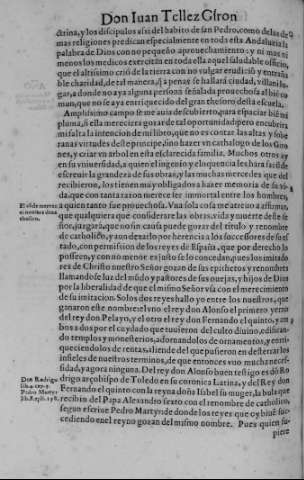 Don Iuan Tellez Giron
ctrina, y los discipulos assi del habito de san Pedro, como de las de
mas religiones predican especialmente en toda esta Andaluzia la
palabra de Dios con no pequeño aprouechamiento: y ni mas ni
menos los medicos exercitan en toda ella aquel saludable officio,
que el altissimo crió de la tierra con no vulgar erudició y entraña
ble charidad, de tal manera, q̃ a penas se hallará ciudad, villa ni lu
gar, a donde no aya alguna persona señalada prouechosa al bié co
mun, que no se aya enriquecido del gran thesoro desta escuela.
Amplissimo campo se me auia descubierto, para espaciar bié mi
pluma, si ella mereciera gozar de tal oportunidad, pero encubrirá
mi falta la intencion de mi libro, que no es contar las altas y sobe
ranas virtudes deste principe, sino hazer vn cathalogo de los Giro
nes, y criar vn arbol en esta esclarecida familia. Muchos otros ay
en su vniuersidad, a quien el ingenio y eloquencia les hizra facil de
escreuir la grandeza de sus obras, y las muchas mercedes que del
recibieron, los tienen muy obligados a hazer memoria de su vi-
da, que con tanta razon merece ser immortal entre los hombres,
a quien tanto fue prouechosa. Vna sola cosa me atreuo a affirmar,
que qualquiera que considerare las obras, vida y muerte deste se
ñor, juzgará, que no sin causa puede gozar del titulo y renombre
de catholico, y aun dexarlo por herencia a los successores de su es
tado, con permission de los reyes de España, que por derecho la
posseen, y con no menor es justo se lo concedan, pues los imitado
res de Christo nuestro Señor gozan de sus epithetos y renombres
llamandose luz del mũdo y pastores de sus ouejas, y hijos de Dios
por la liberalidad de que el mismo Señor vsa con el merecimiento
de su imitacion. Solos dos reyes hallo yo entre los nuestros, que
ganaron este nombre el vno el rey don Alonso el primero yerno
del rey don Pelayo, y el otro el rey don Fernando el quinto, y am
bos a dos por el cuydado que tuuieron del culto diuino, edifican-
do templos y monesterios, adornandolos de ornamentos, y enri-
queciendolos de rentas, allende del que pusieron en desterrar los
infieles de nuestros terminos, de que entonces vuo mucha neces-
sidad, y agora ninguna. Del rey don Alonso buen testigo es dõ Ro
drigo arçobispo de Toledo en su coronica Latina, y del Rey don
Fernando el quinto con la reyna doña Isabel su muger, la bula que
recibio del Papa Alexandro sexto con el renombre de catholico,
segun escriue Pedro Martyr de donde los reyes que oy biué suc-
cediendo en el reyno gozan del mismo nombre. Pues quien su-
piere
Don Rodrigo
Pedro Martyr